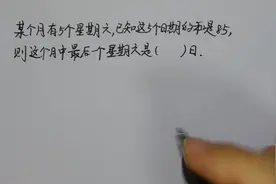 某个月有5个星期六,已知这5个日期的和是85,
则这个月中最后一个星期六是( )日.